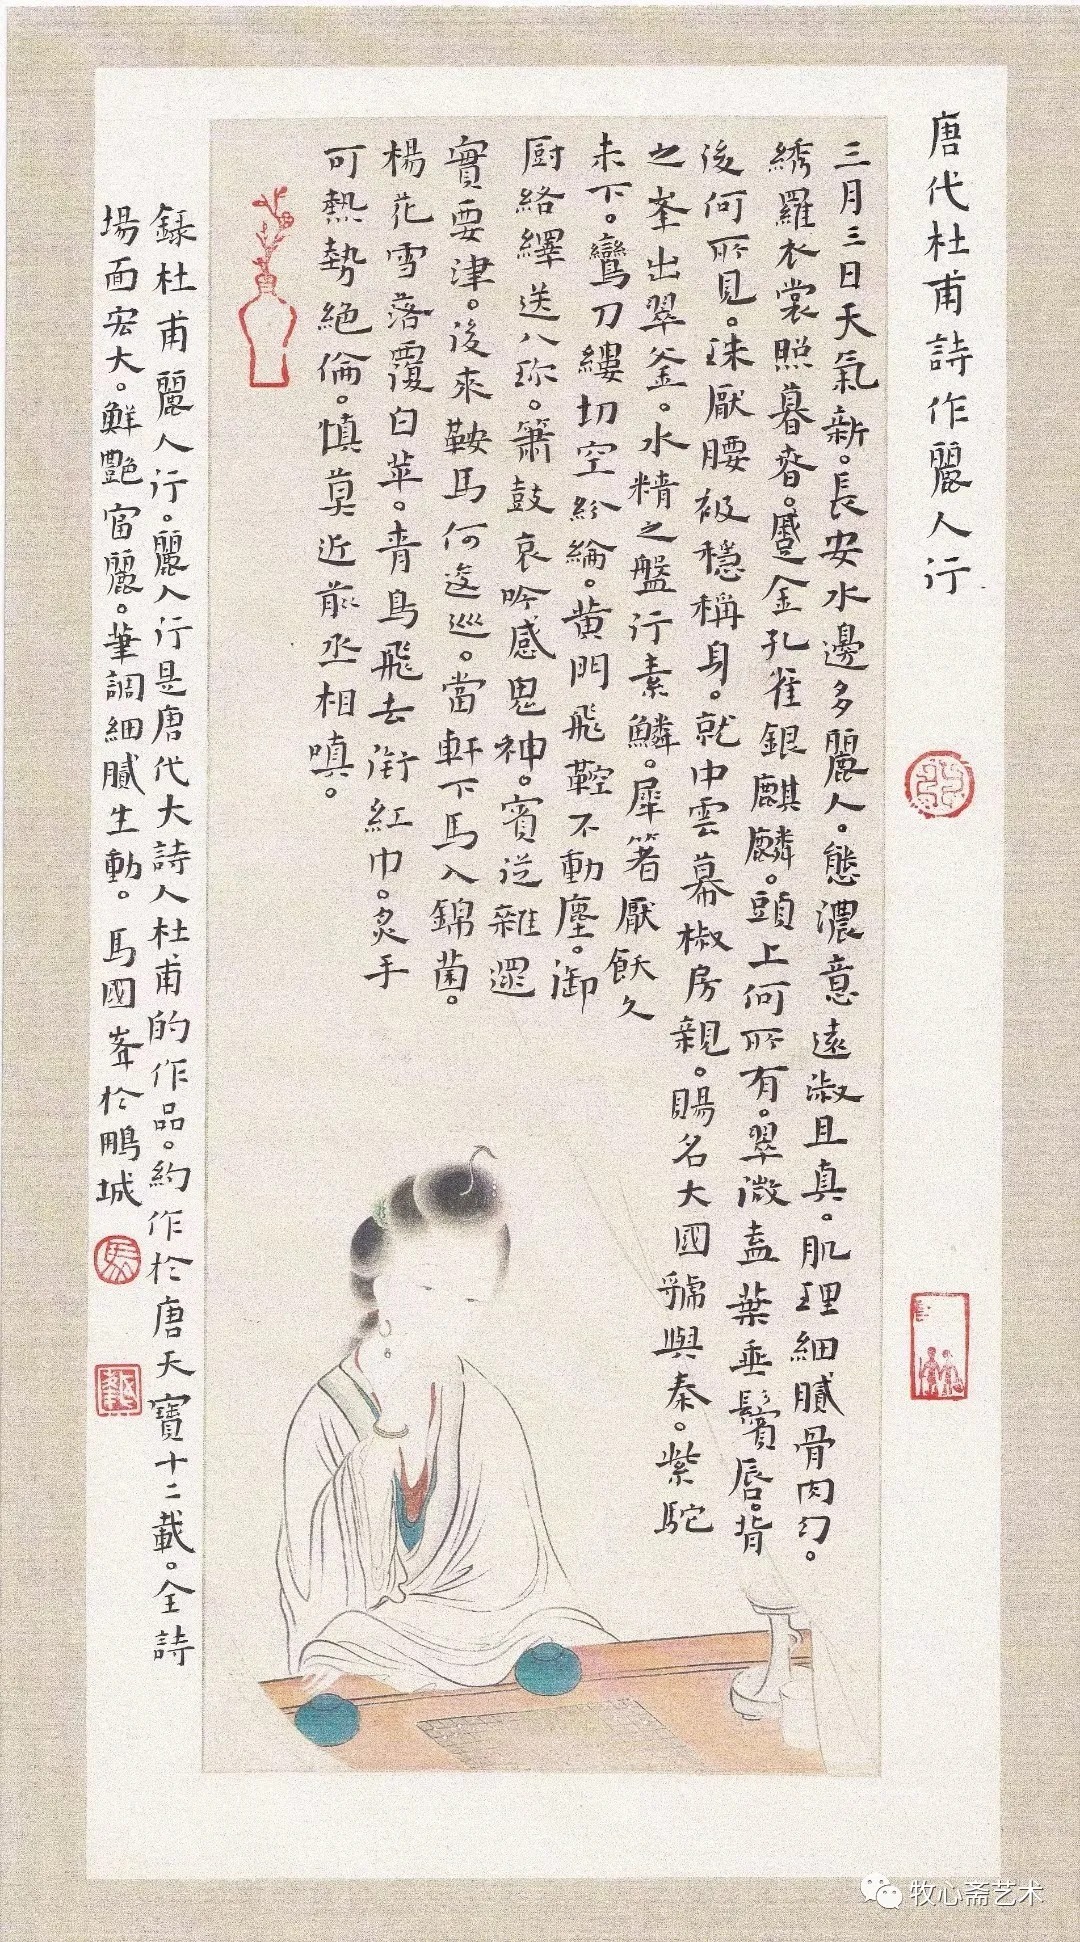 唐代杜甫詩作麗人行
三月三日天氣新。長安水邊多麗人。態濃意遠淑且真。肌理細膩骨肉匀。
綉羅衣裳照暮春。蹙金孔雀銀麒麟。頭上何所有。翠微盍葉垂鬢唇。背
後何所見。珠厭腰衱穩稱身。就中雲幕椒房親。賜名大國虢與秦。紫駝
之峯出翠釜。水精之盤行素鱗。犀箸厭飫久
未下。鸞刀縷切空紛綸。黄門飛鞚不動塵。御
厨絡繹送八珎。簫鼓哀吟感鬼神。賓從雜遝
實要津。後來鞍馬何逡巡。當軒下馬入錦茵。
楊花雪落覆白苹。青鳥飛去銜紅巾。炙手
可熱勢絶倫。慎莫近前丞相嗔。
録杜甫麗人行。麗人行是唐代大詩人杜甫的作品。約作於唐天寶十二載。全詩
場面宏大。鮮艷富麗。筆調細膩生動。馬國峯於鵬城
馬
牧心斋艺术